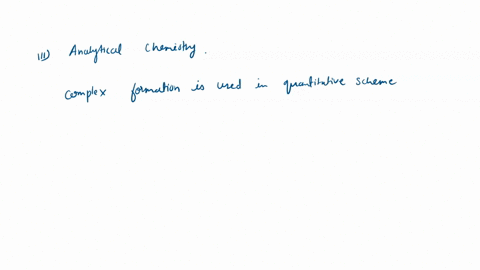 III) Analytical Chemistry.
Complex formation is used in quantitative scheme